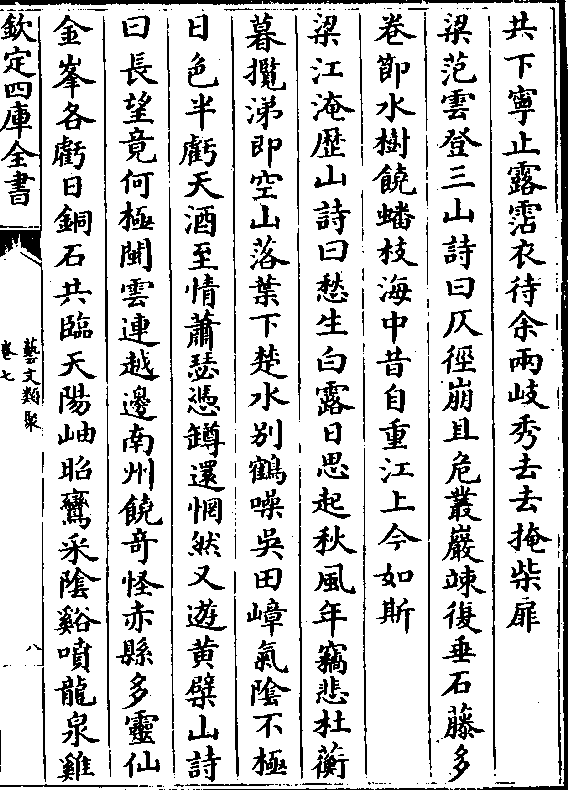 共下寧止露霑衣待余兩岐秀去去掩柴扉
梁范雲登三山詩曰仄徑崩且危叢巖竦復垂石藤多
卷節水樹饒蟠枝海中昔自重江上今如斯
梁江淹歴山詩曰愁生白露日思起秋風年竊悲杜蘅
暮擥涕即空山落葉下楚水别鶴噪吳田嶂氣陰不極
日色半虧天酒至情蕭瑟憑罇還惘然又遊黄檗山詩
曰長望竟何極閩雲連越邊南州饒竒怪赤縣多靈仙
金峯各虧日銅石共臨天陽岫昭鸞采陰谿噴龍泉雞
欽定四庫全書
藝文類聚
卷七
八